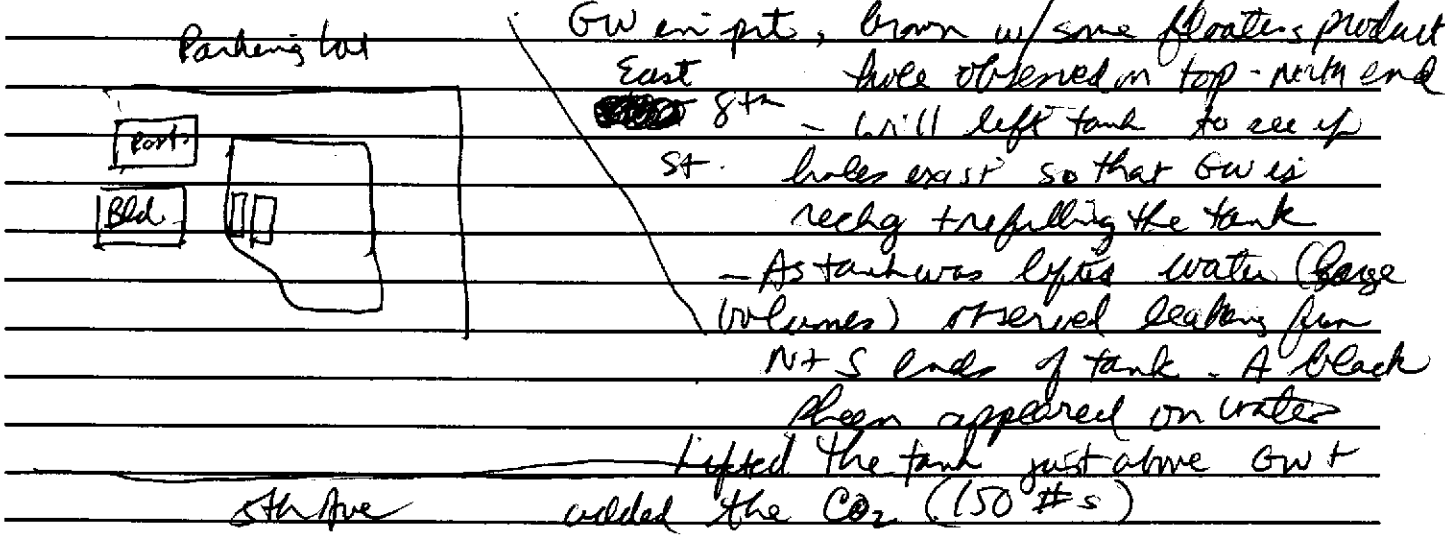 Parking Lot
Ports
Bld.
5th Ave
East
8th
St.
GW in pit, brown w/ some floating product
hole observed on top - north end
- will lift tank to see if
holes exist so that GW is
rechg + refilling the tank
- As tank was lifted water (large
volumes) observed leaking from
N + S ends of tank. A black
sheen appeared on water
Lifted the tank just above GW +
added the CO2 (150 #s)